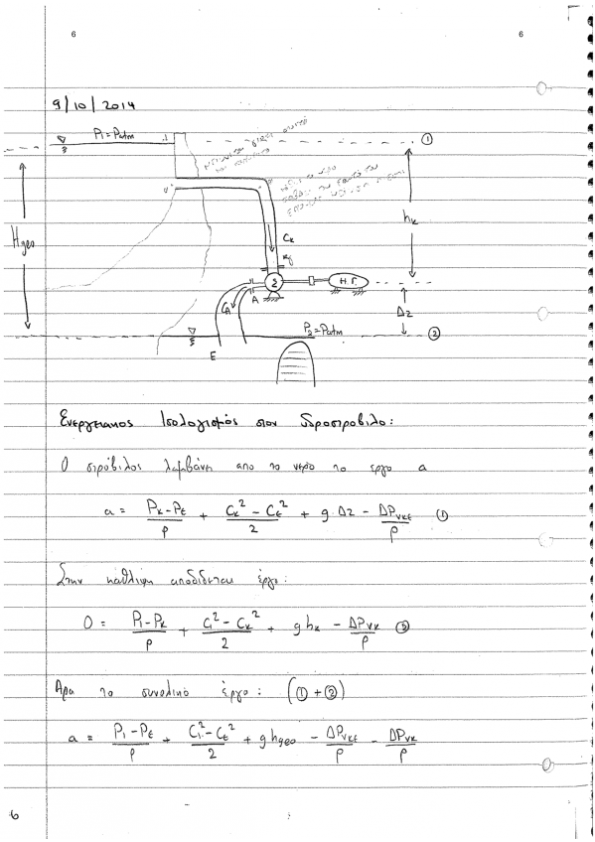 6 6
9/10/2014
P₁=Patm
①
Hgeo
hκ
Cκ
Κ
Σ
Η.Γ.
CA
A
Δz
P₂=Patm
②
E
Ενεργειακος Ισολογισμός στον υδροστροβιλο:
Ο στρόβιλος λαμβάνει απο το νερο το εργο a
a = Pκ-PE/ρ + Cκ²-CE²/2 + g·Δz - ΔPVKE/ρ ①
Στην κάθλιψη αποδίδεται έργο:
0 = P₁-Pκ/ρ + C₁²-Cκ²/2 + ghκ - ΔPVK/ρ ②
Αρα το συνολικό έργο: (①+②)
a = P₁-PE/ρ + C₁²-CE²/2 + g hgeo - ΔPVKE/ρ - ΔPVK/ρ
6